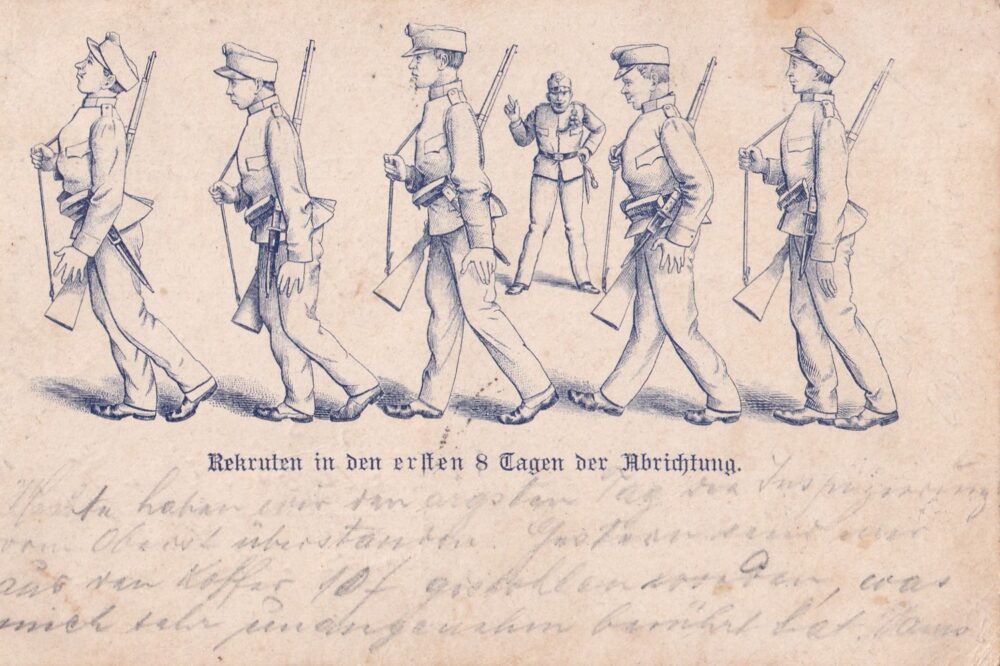 Rekruten in den ersten 8 Tagen der Abrichtung.
Heute haben wir den argsten Tag der Inspizierung
vom Oberst überstanden. Gestern sind mir
aus den Koffer 10 f gestollen worden, was
mich sehr unangenehm berührt hat.